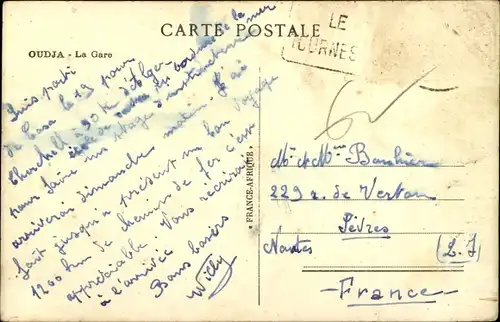 CARTE POSTALE
OUDJA - La Gare
LE
TOURNES
Suis parti
de Casa le 19 pour
Cherchell à 90 K d'Alger
au bord de la mer
pour faire un stage d'instruction
arriverai dimanche matin. J'ai
fait jusqu'à présent un bon voyage
1200 km de chemin de fer c'est
appréciable. Vous écrirai
à l'arrivée
Bons baisers
Willy
« FRANCE-AFRIQUE »
Mr et Mme
229 r. de Vertou
Sèvres
Nantes (L.I)
France